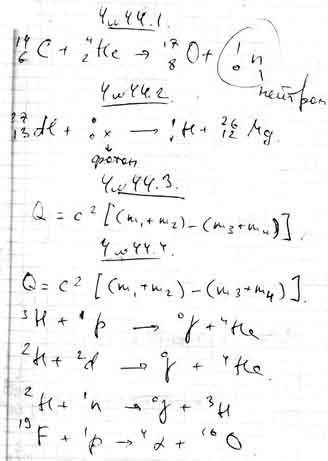 Ч и 44.1.
¹⁴₆C + ⁴₂He → ¹⁷₈O + ¹₀n
нейтрон
Ч и 44.2.
²⁷₁₃Al + ⁰₀γ → ¹₁H + ²⁶₁₂Mg.
фотон
Ч и 44.3.
Q = c² [(m₁+m₂) – (m₃+m₄)].
Ч и 44.4.
Q = c² [(m₁+m₂) – (m₃+m₄)].
³H + ¹p → ⁰γ + ⁴He
²H + ²d → γ + ⁴He.
²H + ¹n → ⁰γ + ³H
¹⁹F + ¹p → ⁴α + ¹⁶O